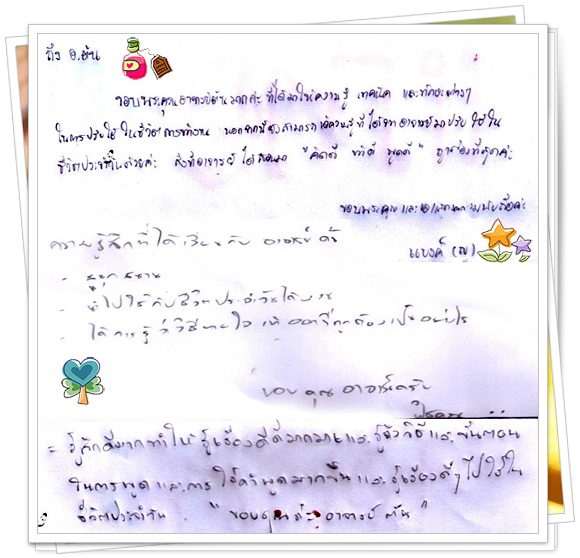 ถึง อ.ตั้น
ขอบพระคุณอาจารย์ตั้นมากค่ะ ที่ได้มาให้ความรู้ เทคนิค และทักษะต่างๆ
ในการปรับใช้ ในชีวิตการทำงาน นอกจากนี้ยังสามารถนำความรู้ที่ได้จากอาจารย์มาปรับใช้ใน
ชีวิตประจำวันด้วยค่ะ สิ่งที่อาจารย์ได้สอนมา "คิดดี ทำดี พูดดี" ถูกต้องที่สุดค่ะ
ขอบพระคุณ และ
แบงค์ (ญ)
ความรู้สึกที่ได้เรียนกับ อาจารย์
- สนุกสนาน
- นำไปใช้กับชีวิตประจำวันได้
- ได้การรู้ว่าวิธีหายใจ ที่ถูกต้องเป็นอย่างไร
ขอบคุณ อาจารย์ครับ
= รู้สึกดีมากทำให้รู้เรื่องดีดีมากมายและรู้ถึงวิธีและขั้นตอน
ในการพูด และการใช้คำพูดมากขึ้น และรู้เรื่องดีๆ ไปใช้ใน
ชีวิตประจำวัน "ขอบคุณค่ะ อาจารย์ตั้น"